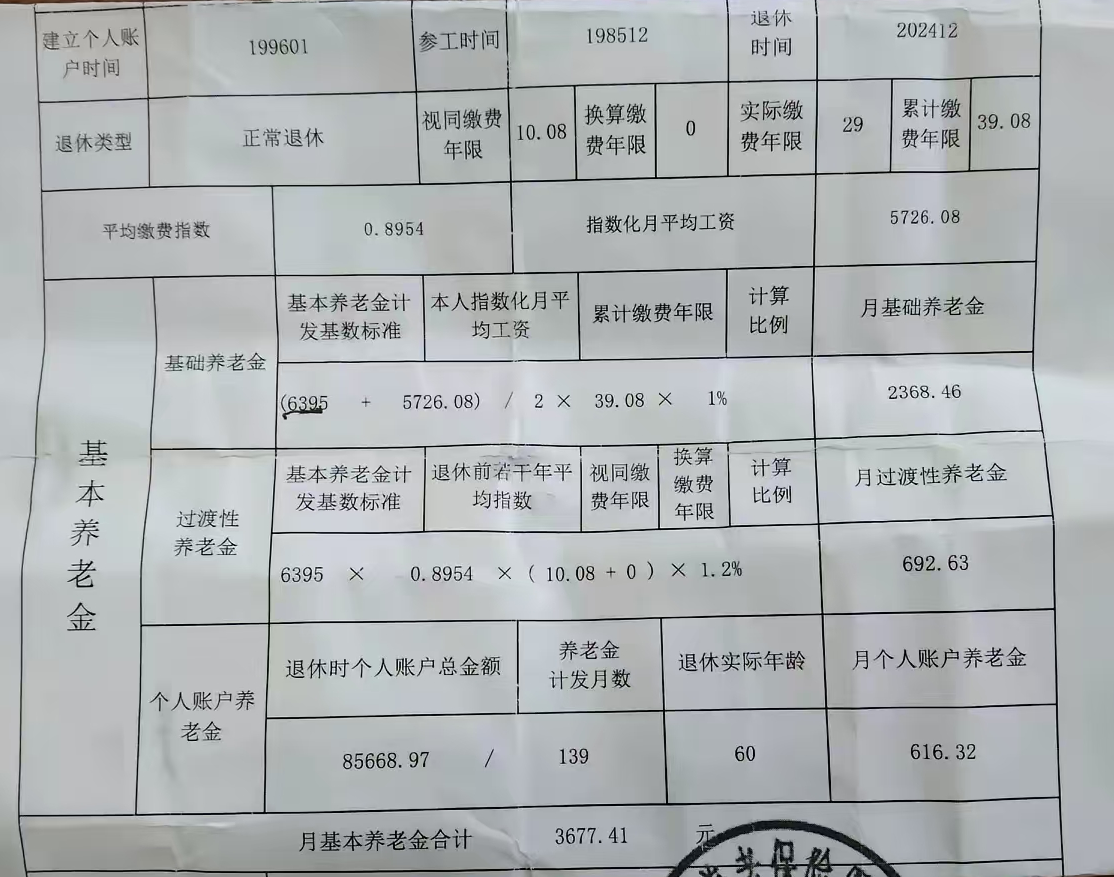 建立个人账
户时间
199601
参工时间
198512
退休
时间
202412
退休类型
正常退休
视同缴费
年限
10.08
换算缴
费年限
0
实际缴
费年限
29
累计缴
费年限
39.08
平均缴费指数
0.8954
指数化月平均工资
5726.08
基本养老金
基础养老金
基本养老金计
发基数标准
本人指数化月平
均工资
累计缴费年限
计算
比例
月基础养老金
(6395 + 5726.08) / 2 × 39.08 × 1%
2368.46
过渡性
养老金
基本养老金计
发基数标准
退休前若干年平
均指数
视同缴
费年限
换算
缴费
年限
计算
比例
月过渡性养老金
6395 × 0.8954 × ( 10.08 + 0 ) × 1.2%
692.63
个人账户养
老金
退休时个人账户总金额
养老金
计发月数
退休实际年龄
月个人账户养老金
85668.97 / 139
60
616.32
月基本养老金合计
3677.41
元
保险